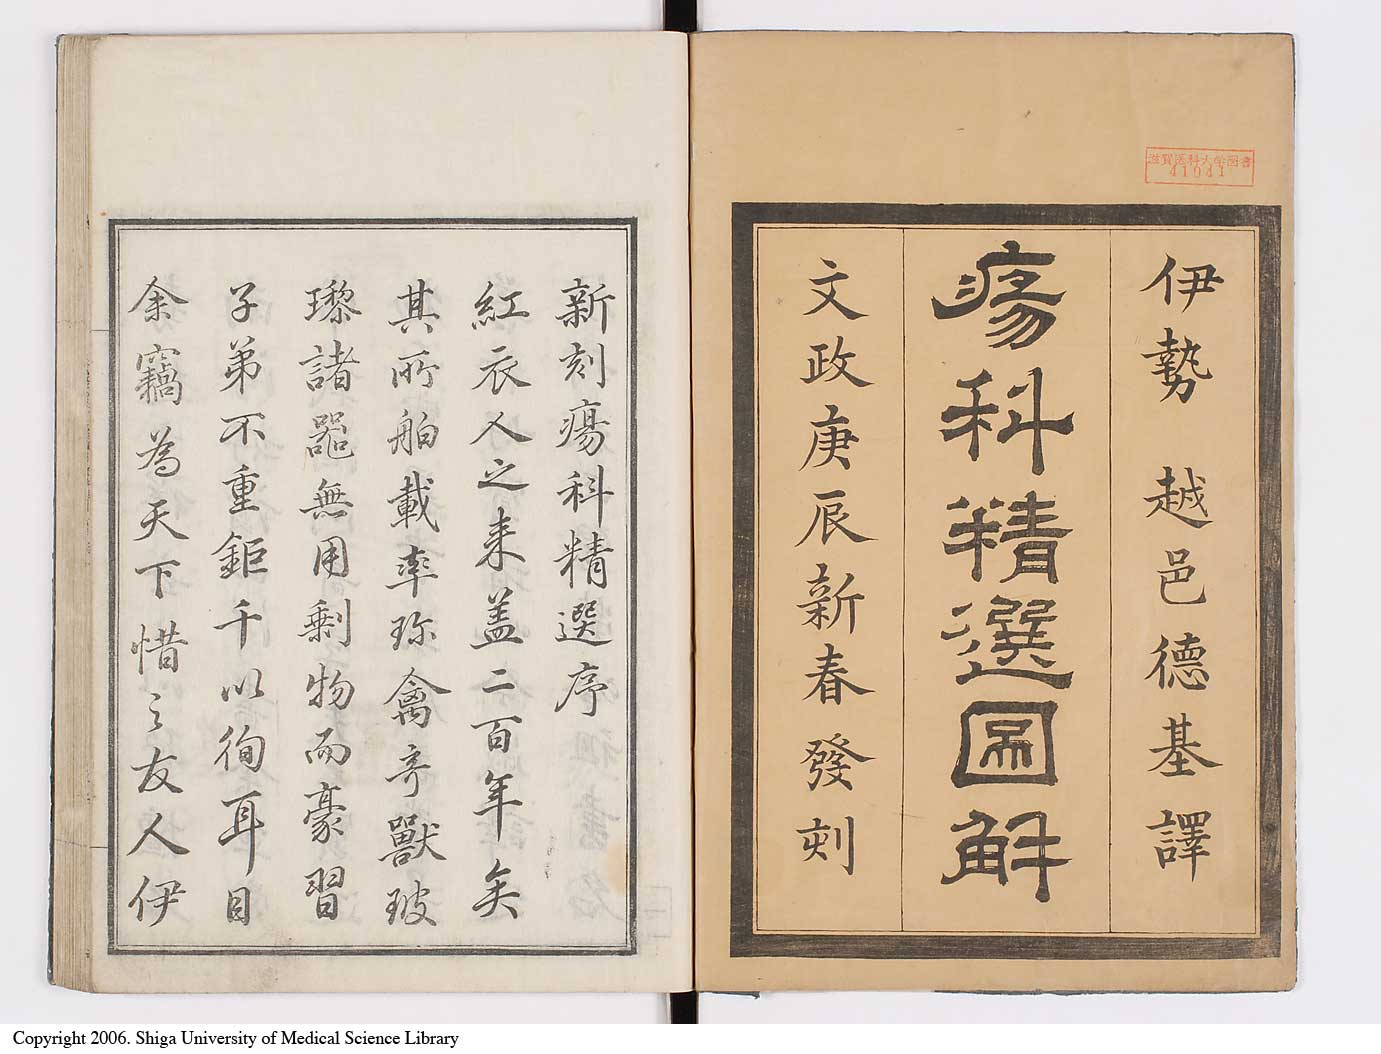 滋賀医科大学図書
41941
伊勢 越邑德基譯
瘍科精選圖解
文政庚辰新春發刻
新刻瘍科精選序
紅衣人之来盖二百年矣
其所舶載率珎禽奇獸玻
瓈諸器無用剩物而豪習
子弟不重鉅千以徇耳目
余竊為天下惜之友人伊
Copyright 2006. Shiga University of Medical Science Library